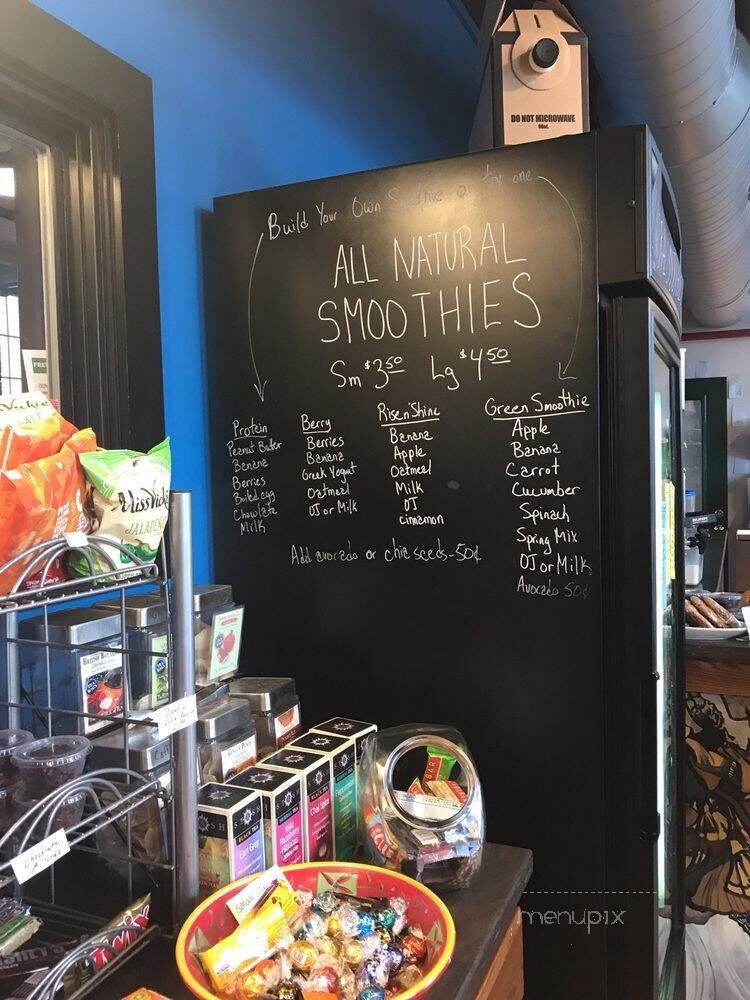 DO NOT MICROWAVE
96oz.
Build Your Own Smoothie or try one
ALL NATURAL
SMOOTHIES
Sm $3.50 Lg $4.50
Protein
Peanut Butter
Banana
Berries
Boiled egg
Chocolate
Milk
Berry
Berries
Banana
Greek Yogurt
Oatmeal
OJ or Milk
Risen'Shine
Banana
Apple
Oatmeal
Milk
OJ
cinnamon
Green Smoothie
Apple
Banana
Carrot
Cucumber
Spinach
Spring Mix
OJ or Milk
Avocado 50¢
Add avocado or chia seeds-50¢
Miss Vickie's
JALAPEÑO
BLACK TEA
Earl Grey
Wild
Raspberry
Hibiscus
Chai Spice
TWIX
menupix